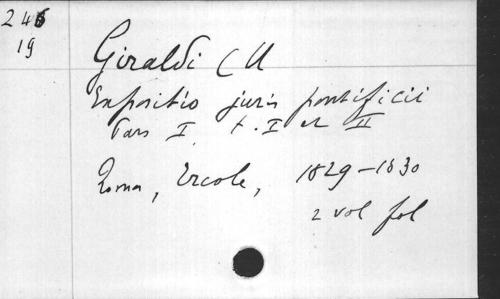 246
19
Giraldi C U
Expositio juris pontificii
Pars I. t. I et II
Roma, Ercole, 1829-1830
2 vol fol